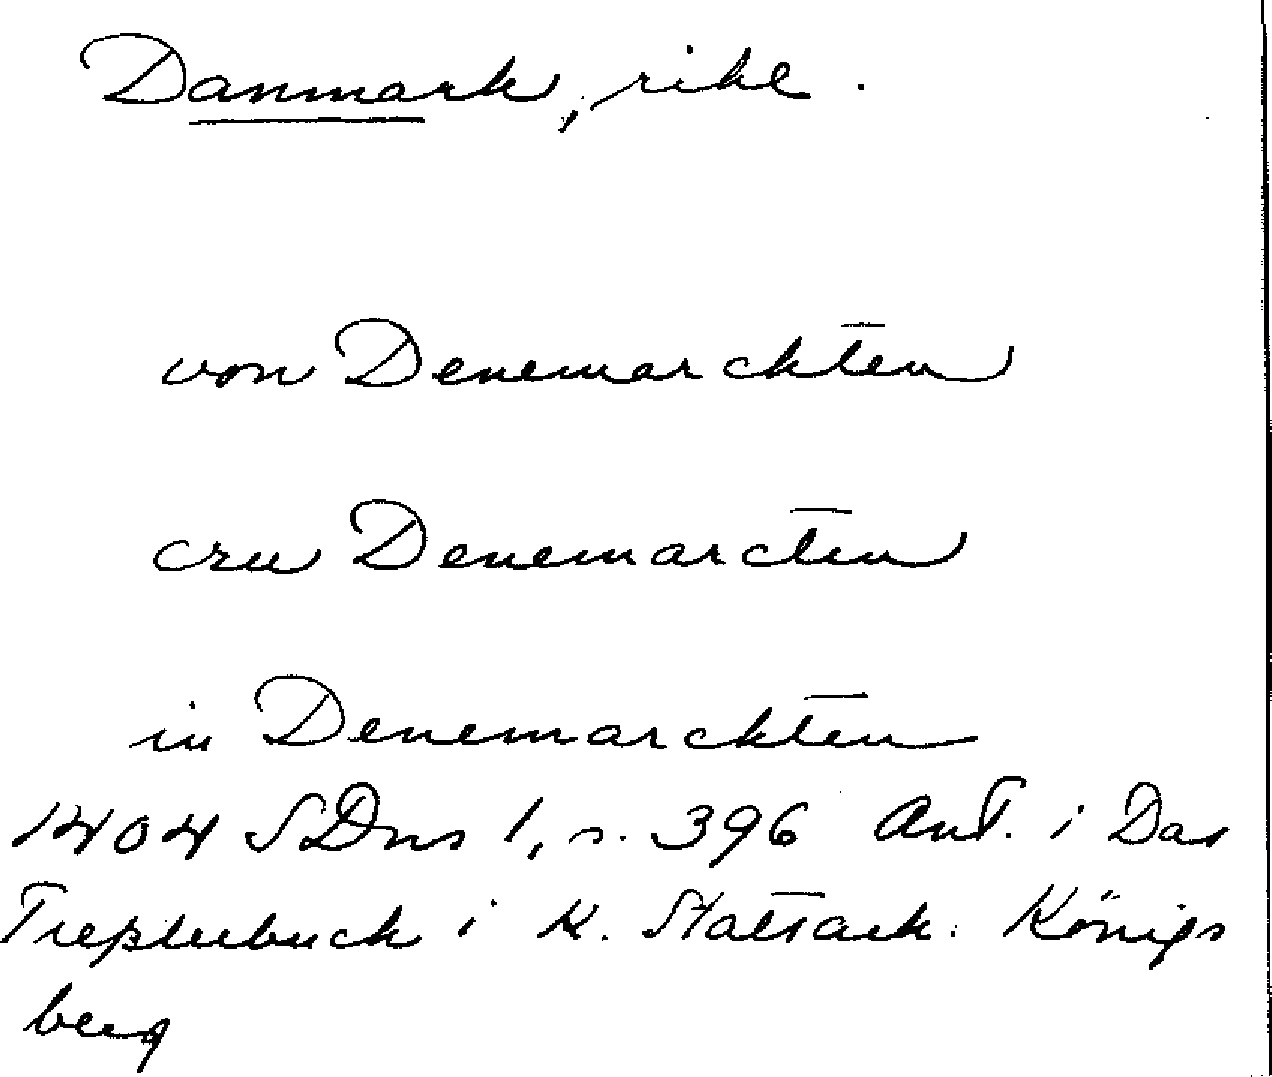 Danmark, rike.
von Denemarckten
czu Denemarcten
in Denemarckten
1404 SDns 1, s. 396 Ant. i Das
Tresslerbuch i K. Statsark. Königs
berg